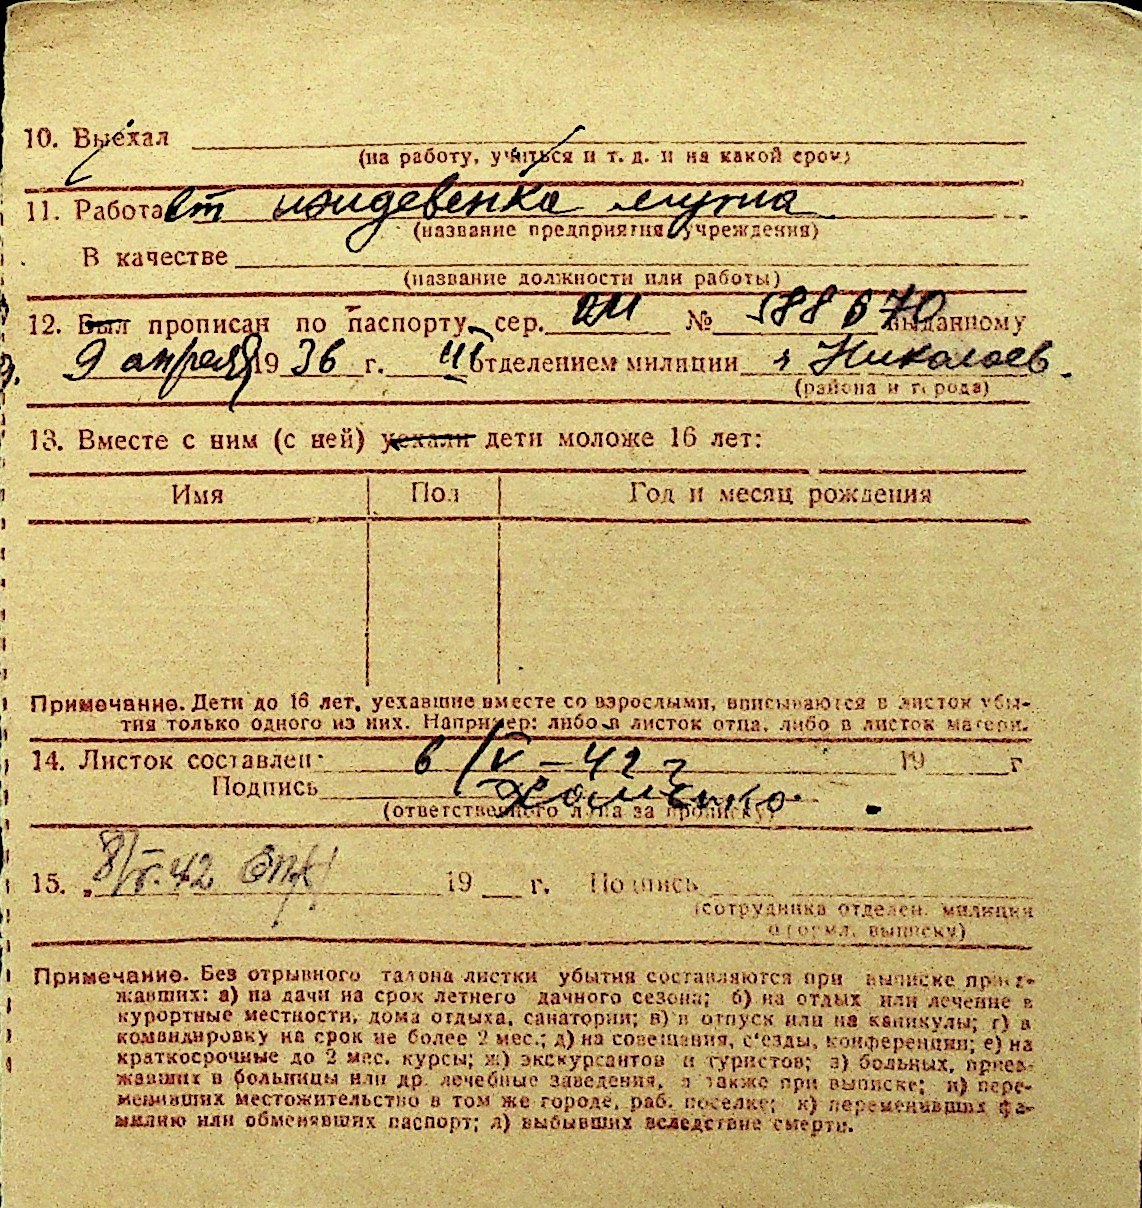 10. Выехал
(на работу, учиться и т. д. и на какой срок)
11. Работает иждевенка мужа
(название предприятия, учреждения)
В качестве
(название должности или работы)
12. Был прописан по паспорту сер. № 588670 выданному
9 апреля 1936 г. III отделением милиции г Николаев.
(района и города)
13. Вместе с ним (с ней) уехали дети моложе 16 лет:
Имя Пол Год и месяц рождения
Примечание. Дети до 16 лет, уехавшие вместе со взрослыми, вписываются в листок убы-
тия только одного из них. Например: либо в листок отца, либо в листок матери.
14. Листок составлен 6/V-42 г 19 г
Подпись
(ответственного лица за прописку)
15. 8/V.42 19 г. Подпись
(сотрудника отделен. милиции
оформл. выписку)
Примечание. Без отрывного талона листки убытия составляются при выписке приез-
жавших: а) на дачи на срок летнего дачного сезона; б) на отдых или лечение в
курортные местности, дома отдыха, санатории; в) в отпуск или на каникулы; г) в
командировку на срок не более 2 мес.; д) на совещания, с'езды, конференции; е) на
краткосрочные до 2 мес. курсы; ж) экскурсантов и туристов; з) больных, приез-
жавших в больницы или др. лечебные заведения, а также при выписке; и) пере-
менивших местожительство в том же городе, раб. поселке; к) переменивших фа-
милию или обменявших паспорт; л) выбывших вследствие смерти.